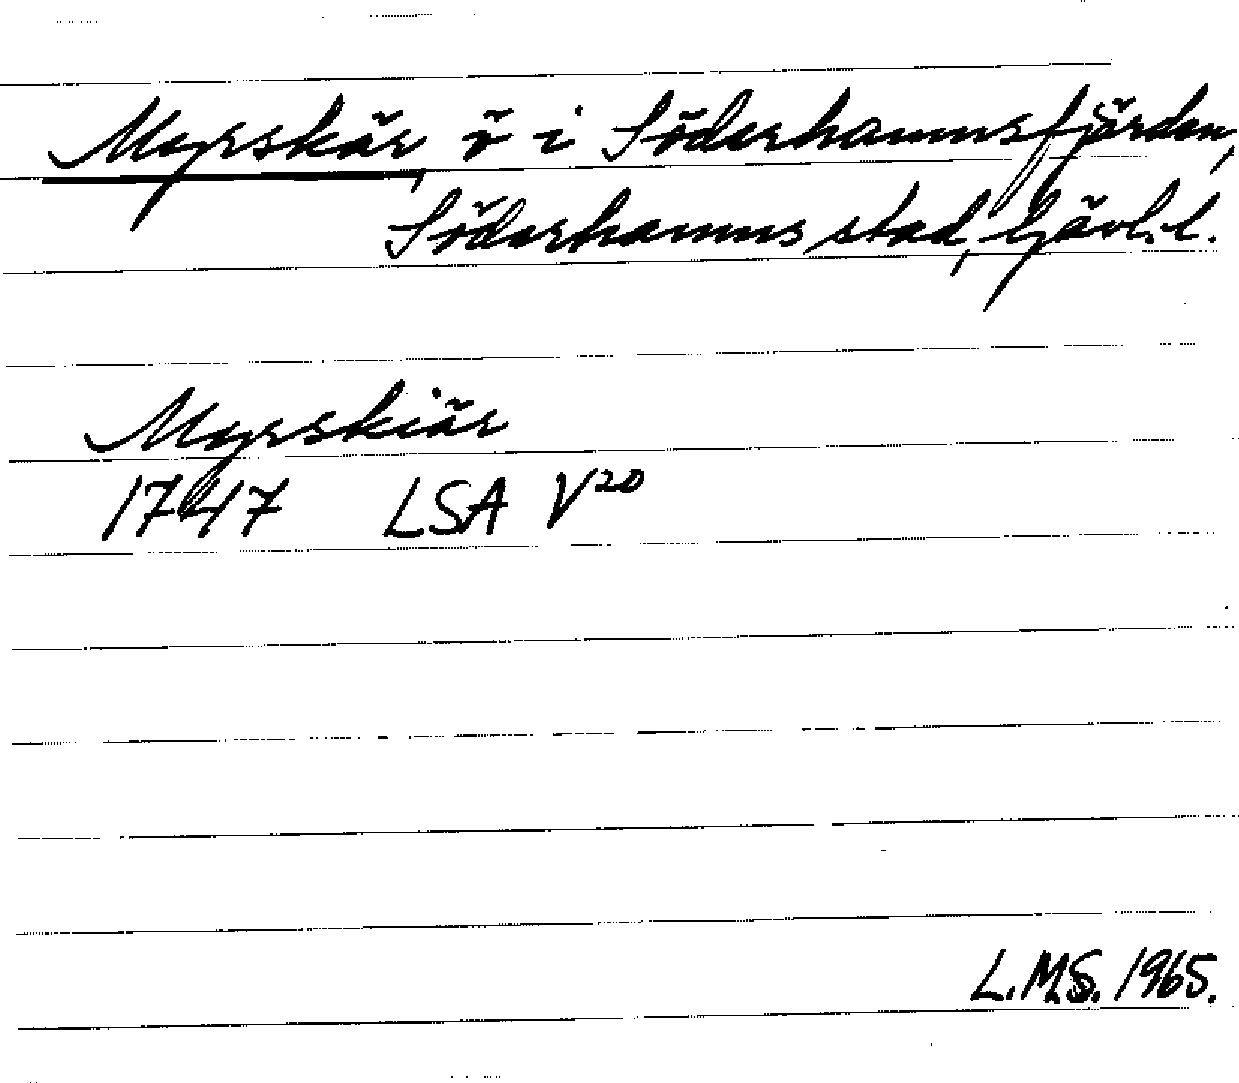 Myrskär, ö i Söderhamnsfjärden,
Söderhamns stad, Gävl.l.
Myrskiär
1747 LSA V20
L.M.S. 1965.